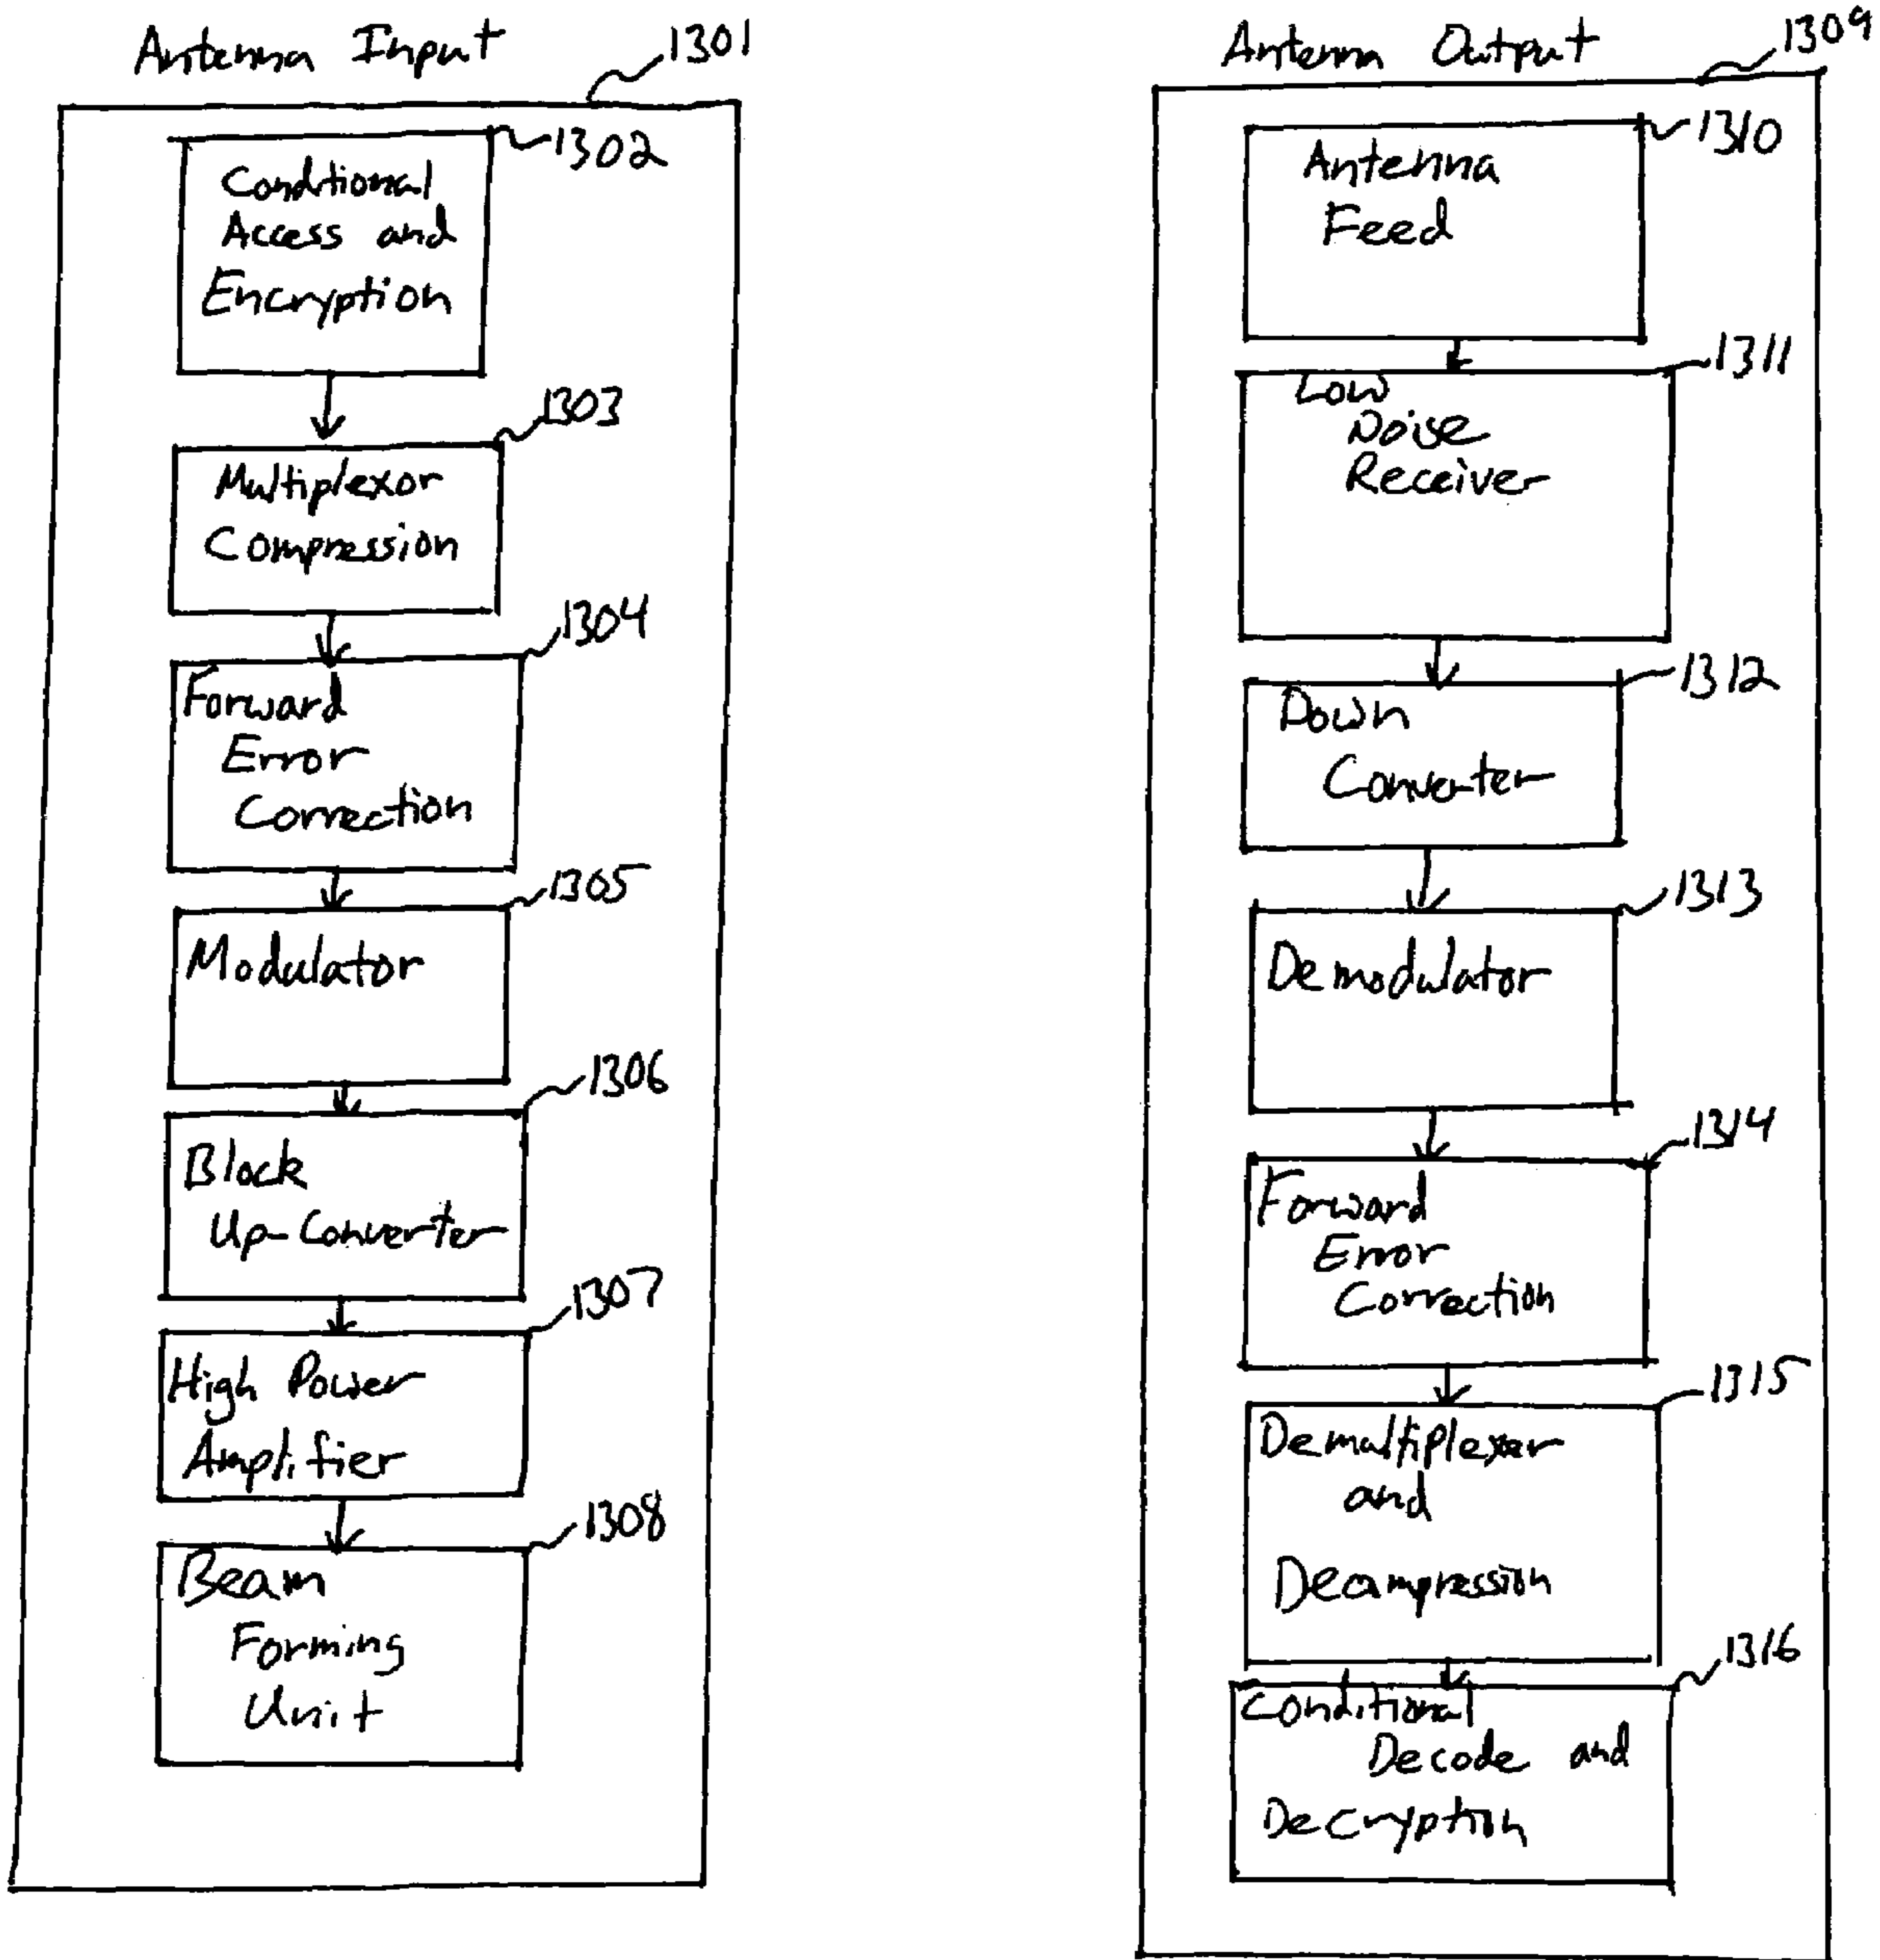 Antenna Input
1301
1302
Conditional
Access and
Encryption
1303
Multiplexor
Compression
1304
Forward
Error
Correction
1305
Modulator
1306
Block
Up-Converter
1307
High Power
Amplifier
1308
Beam
Forming
Unit
Antenna Output
1309
1310
Antenna
Feed
1311
Low
Noise
Receiver
1312
Down
Converter
1313
Demodulator
1314
Forward
Error
Correction
1315
Demultiplexer
and
Decompression
1316
Conditional
Decode and
Decryption